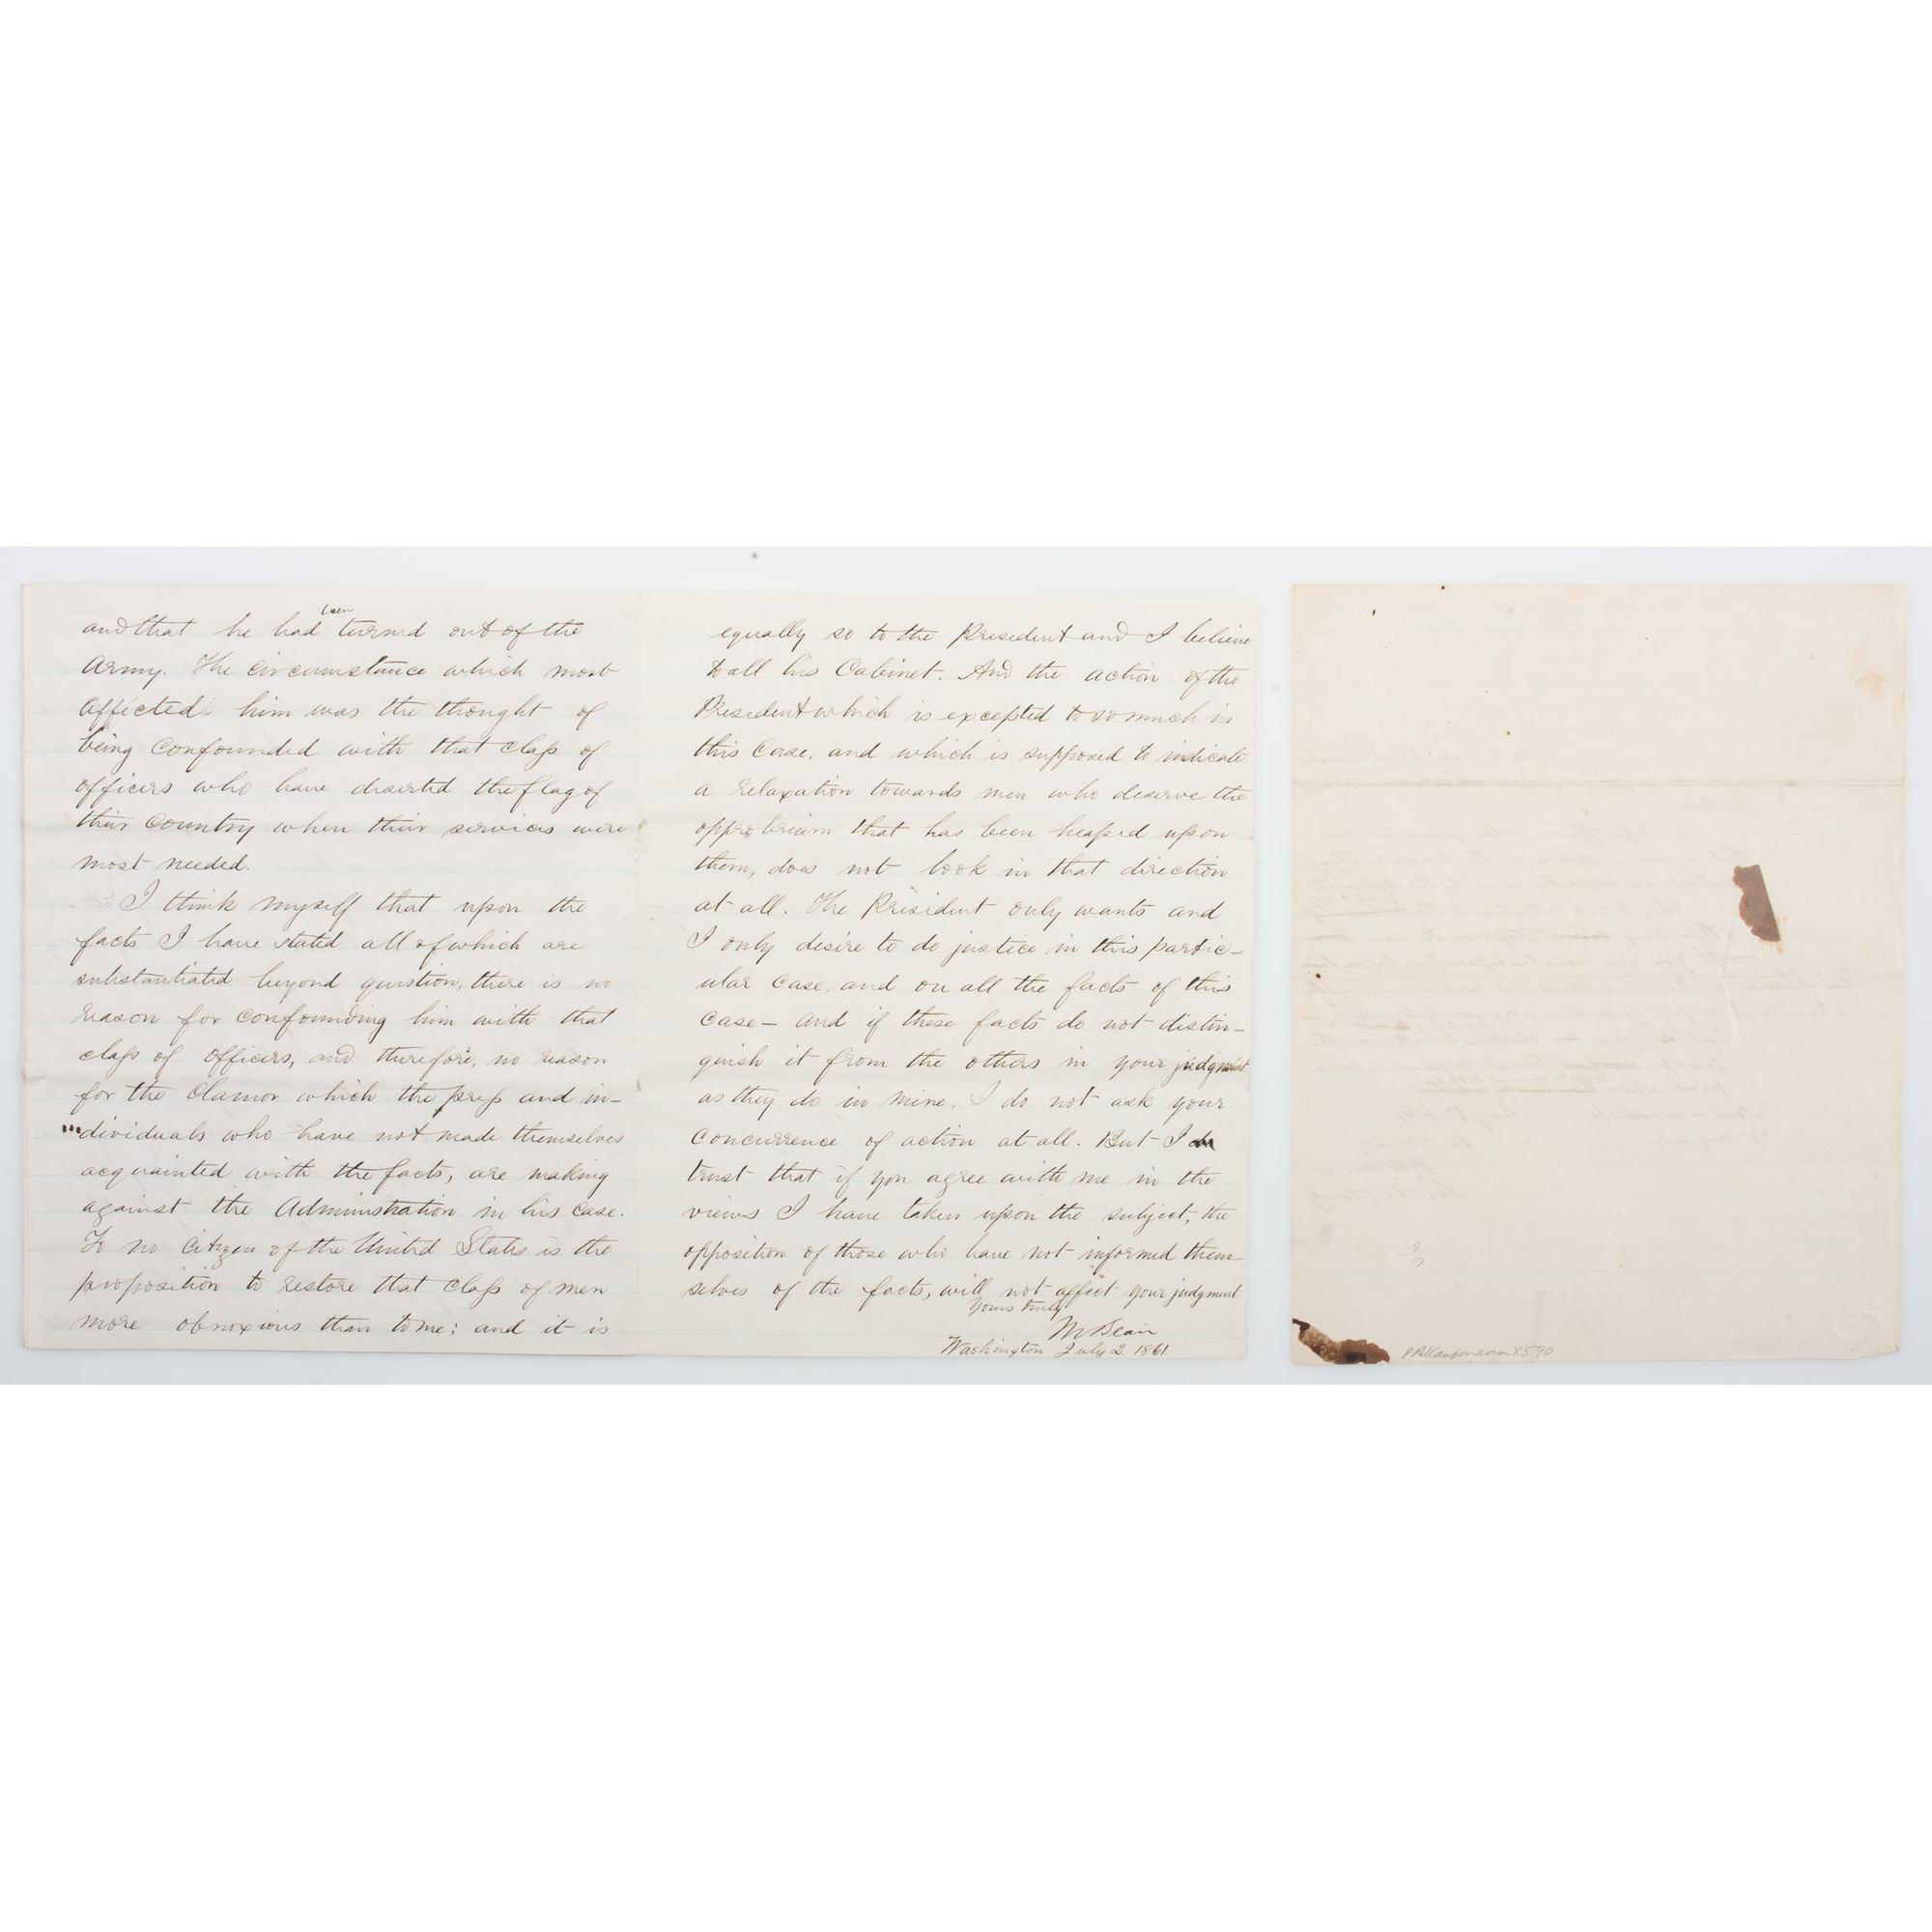 been
and that he had turned out of the
Army. The circumstance which most
affected him was the thought of
being confounded with that class of
officers who have deserted the flag of
their country when their services were
most needed.
I think myself that upon the
facts I have stated all of which are
substantiated beyond question, there is no
reason for confounding him with that
class of officers, and therefore, no reason
for the clamor which the press and in-
dividuals who have not made themselves
acquainted with the facts, are making
against the Administration in his case.
To no citizen of the United States is the
proposition to restore that class of men
more obnoxious than to me; and it is
equally so to the President and I believe
to all his Cabinet. And the action of the
President which is excepted to so much in
this case, and which is supposed to indicate
a relaxation towards men who deserve the
opprobrium that has been heaped upon
them, does not look in that direction
at all. The President only wants and
I only desire to do justice in this partic-
ular case, and on all the facts of this
case— and if these facts do not distin-
guish it from the others in your judgment
as they do in mine. I do not ask your
concurrence of action at all. But I
trust that if you agree with me in the
views I have taken upon the subject, the
opposition of those who have not informed them-
selves of the facts, will not affect your judgment
Yours truly
M Blair
Washington July 2. 1861.